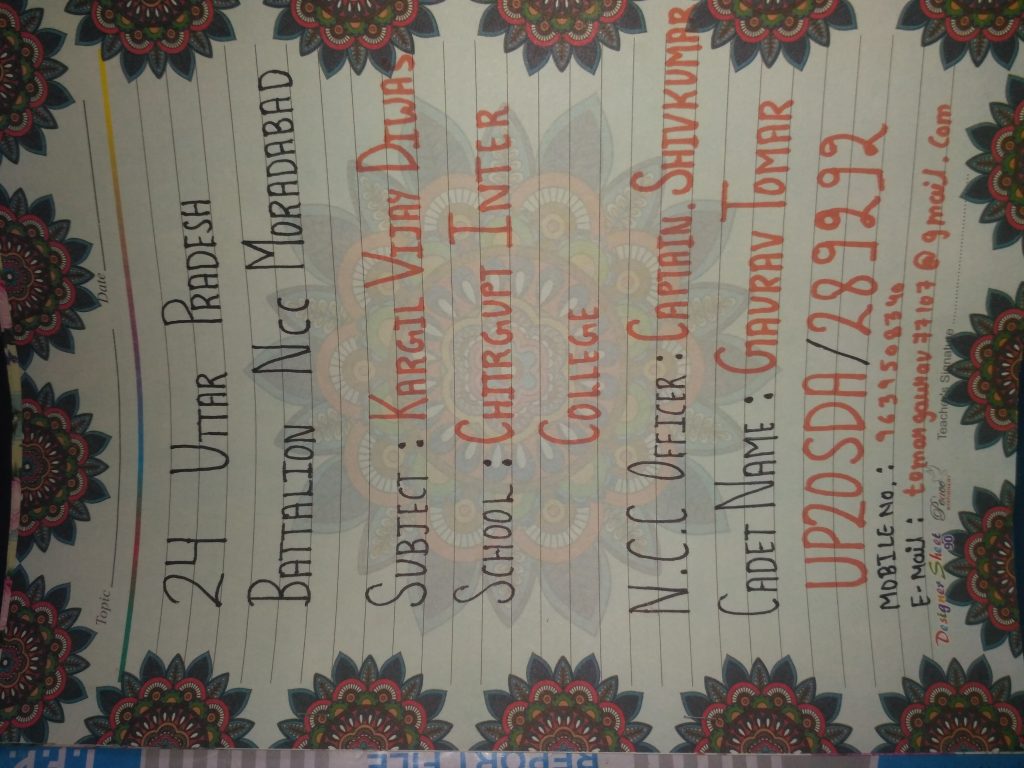 Topic Date
24 UTTAR PRADESH
BATTALION NCC MORADABAD
SUBJECT : KARGIL VIJAY DIWAS
SCHOOL : CHITRGUPT INTER
COLLEGE
N.C.C OFFICER : CAPTAIN. SHIVKUMAR
CADET NAME : GAURAV TOMAR
UP20SDA/289292
MOBILE NO.: 9639508340
E-Mail : tomargaurav77107@gmail.com
Designer Sheet Teacher's Signature
REPORT FILE